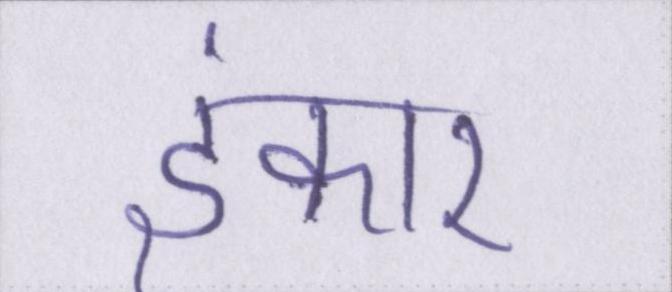 इंकार